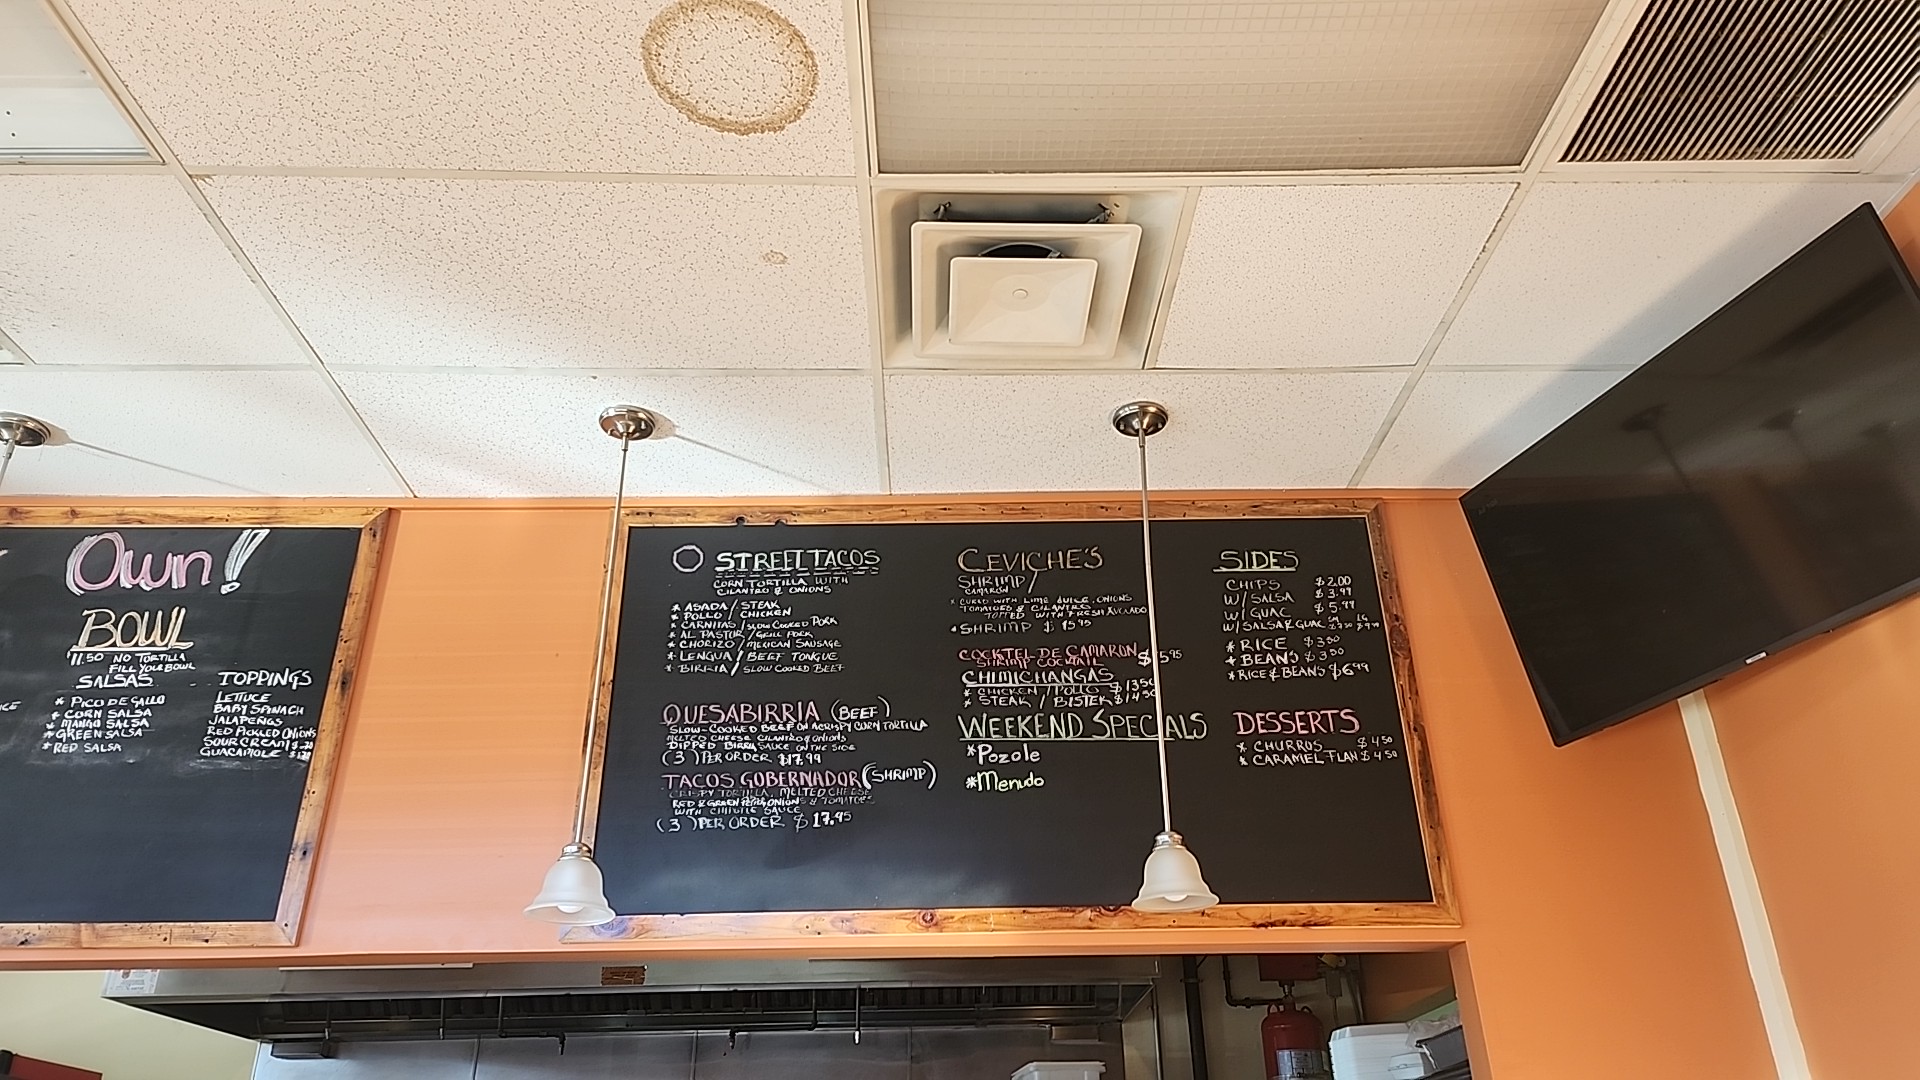 Own!
BOWL
$11.50 NO TORTILLA
FILL YOUR BOWL
SALSAS
* PICO DE GALLO
* CORN SALSA
* MANGO SALSA
* GREEN SALSA
* RED SALSA
TOPPINGS
LETTUCE
BABY SPINACH
JALAPEÑOS
RED PICKLED ONIONS
SOUR CREAM
GUACAMOLE
STREET TACOS
CORN TORTILLA WITH
CILANTRO & ONIONS
* ASADA / STEAK
* POLLO / CHICKEN
* CARNITAS / SLOW COOKED PORK
* AL PASTOR / GRILL PORK
* CHORIZO / MEXICAN SAUSAGE
* LENGUA / BEEF TONGUE
* BIRRIA / SLOW COOKED BEEF
QUESABIRRIA (BEEF)
SLOW-COOKED BEEF ON A CRISPY CORN TORTILLA
MELTED CHEESE CILANTRO & ONIONS
DIPPED BIRRIA SAUCE ON THE SIDE
(3) PER ORDER $17.99
TACOS GOBERNADOR (SHRIMP)
CRISPY TORTILLA, MELTED CHEESE
RED & GREEN ONIONS & TOMATOES
WITH CHIPOTLE SAUCE
(3) PER ORDER $17.95
CEVICHE'S
SHRIMP/
CAMARON
* CURED WITH LIME JUICE, ONIONS
TOMATOES & CILANTRO
TOPPED WITH FRESH AVOCADO
* SHRIMP $15.95
COCKTEL DE CAMARON $ 5.95
SHRIMP COCKTAIL
CHIMICHANGAS
* CHICKEN / POLLO $13.50
* STEAK / BISTEK $14.50
WEEKEND SPECIALS
*Pozole
*Menudo
SIDES
CHIPS $2.00
W/ SALSA $3.99
W/ GUAC $5.99
W/ SALSA & GUAC SM LG
* RICE $3.50
* BEANS $3.50
* RICE & BEANS $6.99
DESSERTS
* CHURROS $4.50
* CARAMEL FLAN $4.50